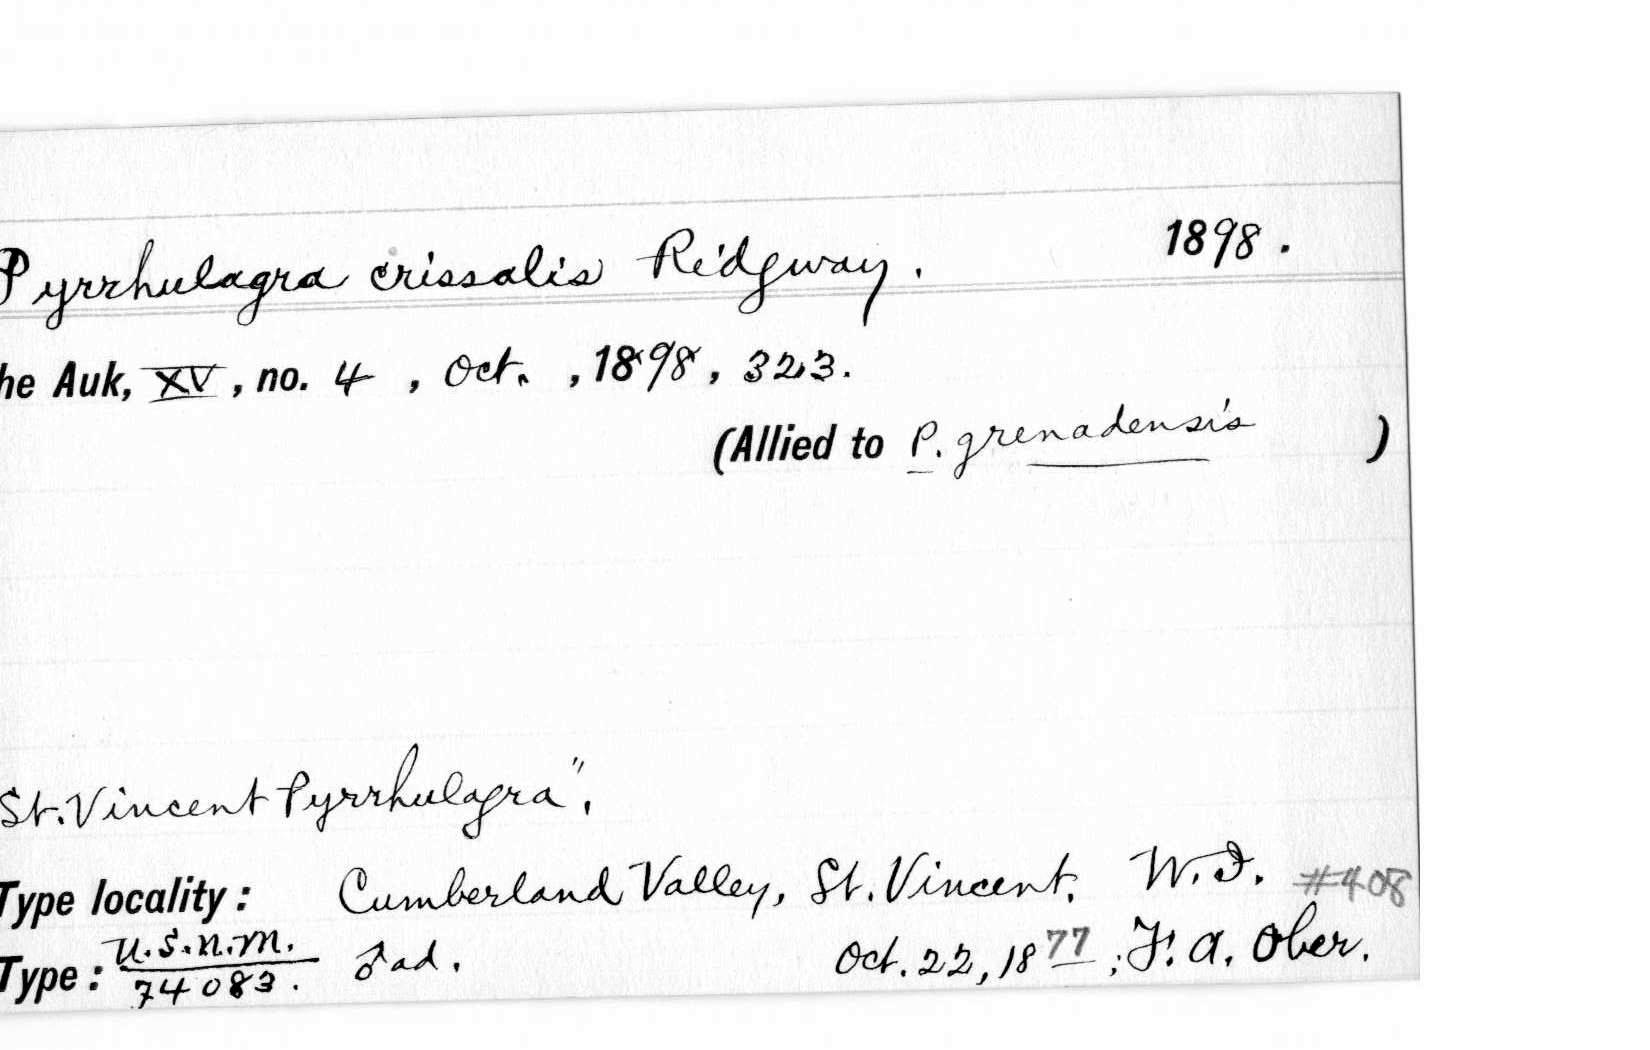 Pyrrhulagra crissalis Ridgway. 1898.
he Auk, XV, no. 4, Oct., 1898, 323.
(Allied to P. grenadensis )
St. Vincent Pyrrhulagra".
Type locality: Cumberland Valley, St. Vincent. W.I. #408
Type: U.S.N.M. 74083. ♂ad. Oct. 22, 1877; F. A. Ober.